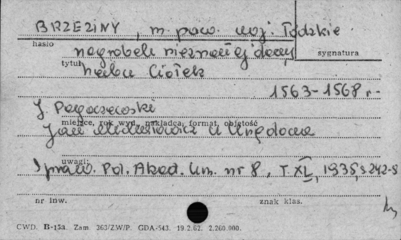 BRZEZINY, m. pow. woj. Łódzkie
hasło
nagrobek nieznanej damy
sygnatura
tytuł
herbu Ciołek
1563-1568 r.
J. Pagaczewski
miejsce, rok wyd., nakładca, format, objętość
Jan Michałowicz z Urzędowa
Spraw. Pol. Akad. Um. nr 8, T. XL, 1935, s 242-8
uwagi
nr inw.
znak klas.
CWD. B-13a. Zam 363/Z.W/P. GDA-543. 19.2.62. 2.260.000.